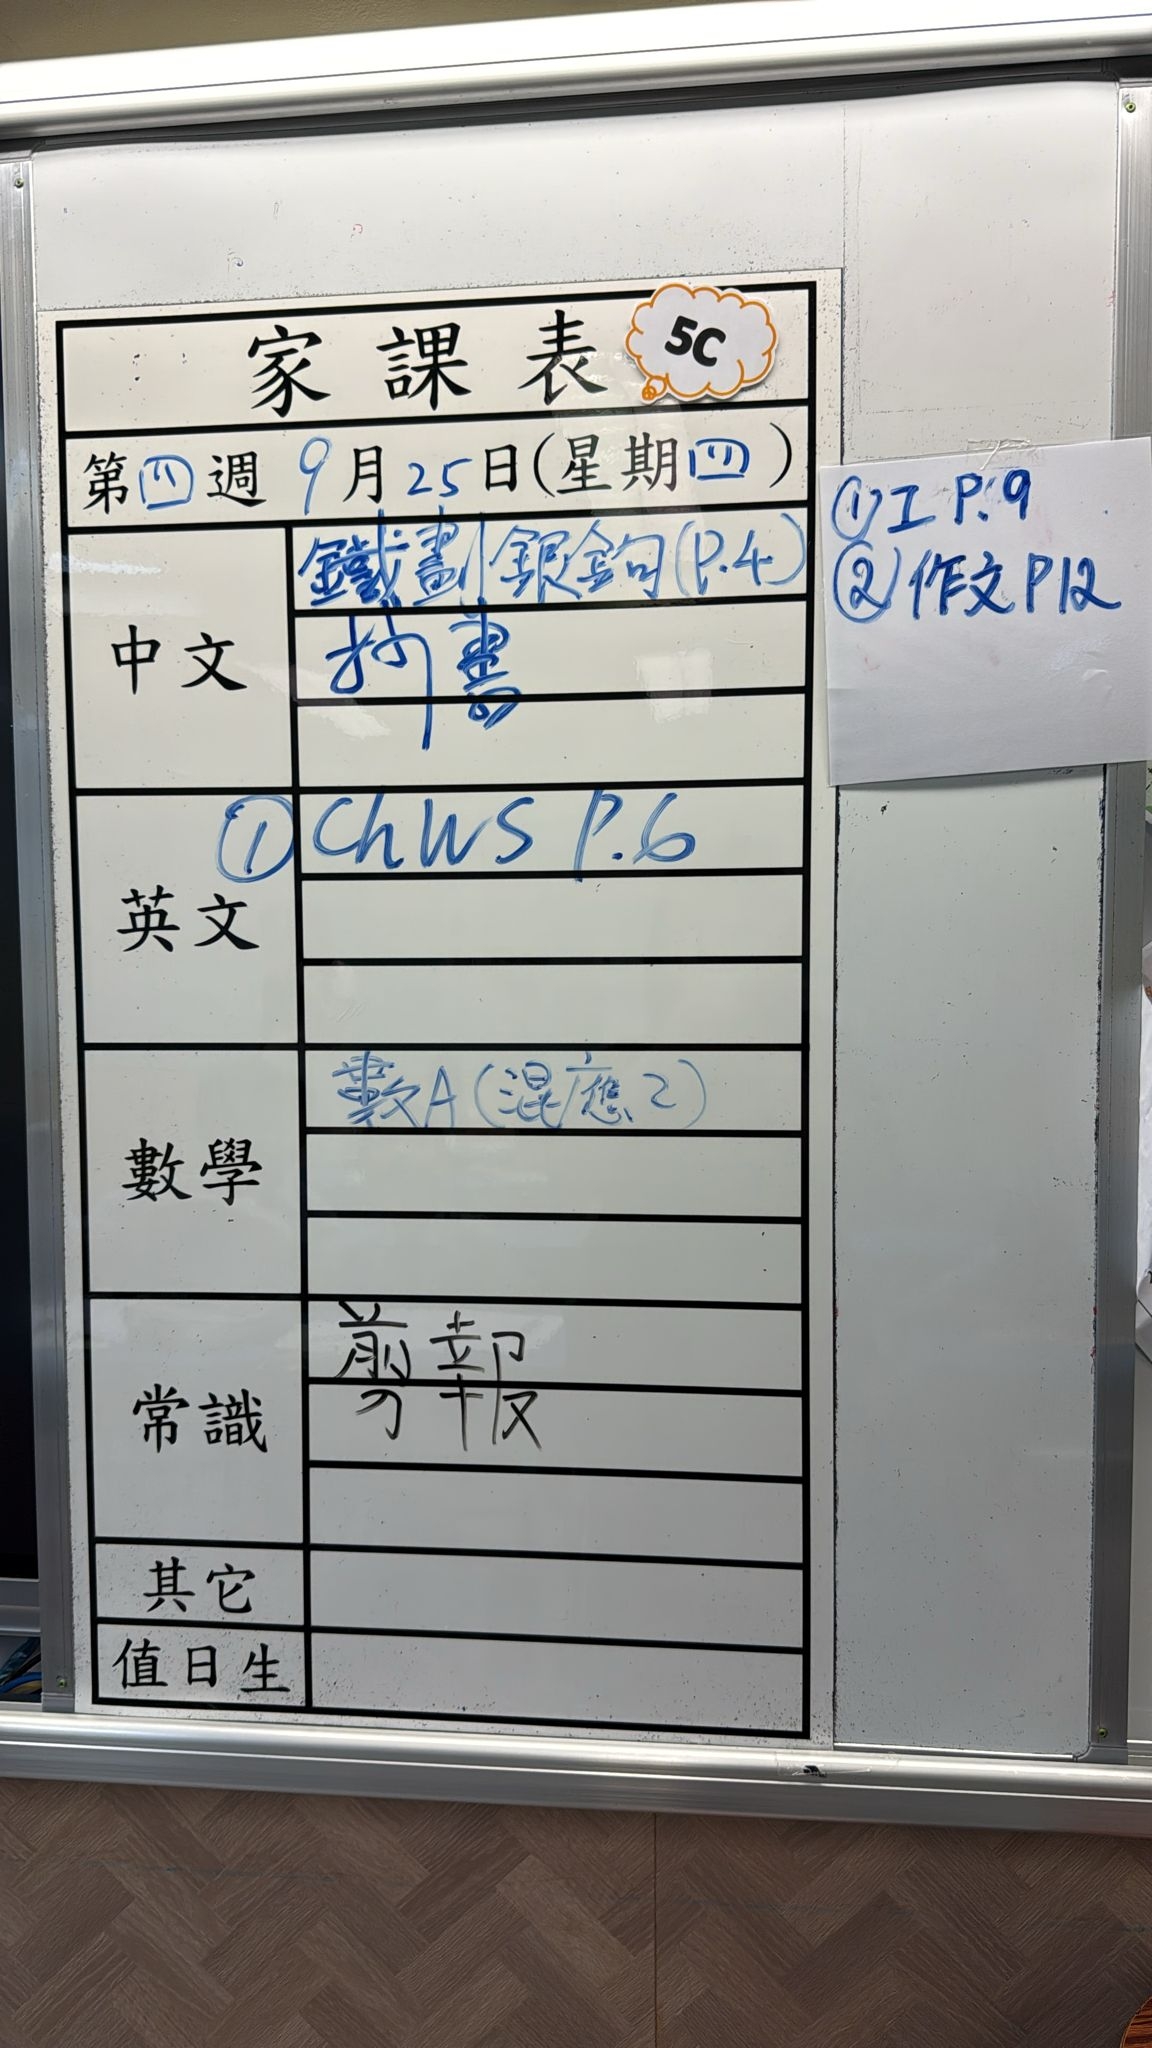 家課表 5C
第四週 9月25日(星期四)
中文
鐵劃銀鉤(P.4)
抄書
①工 P.9
②作文 P12
英文
① ChWS P.6
數學
數A(混應2)
常識
剪報
其它
值日生